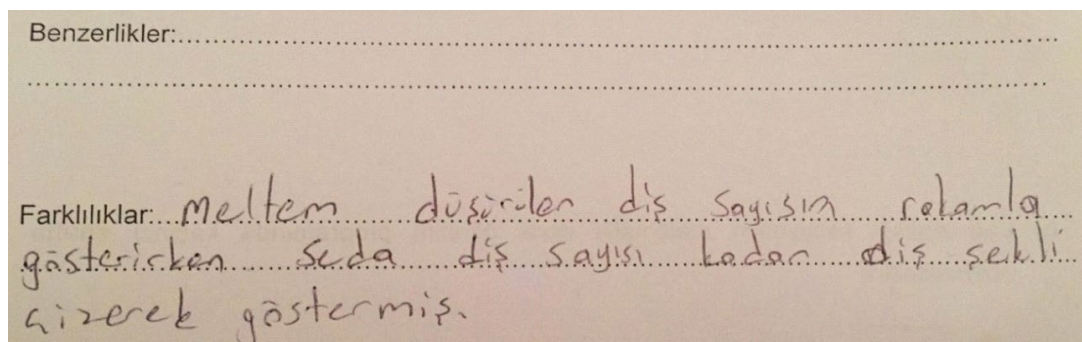 Benzerlikler:..........
..........
Farklılıklar: Meltem düşürülen diş sayısın rakamla
gösterirken Seda diş sayısı kadar diş şekli
çizerek göstermiş.